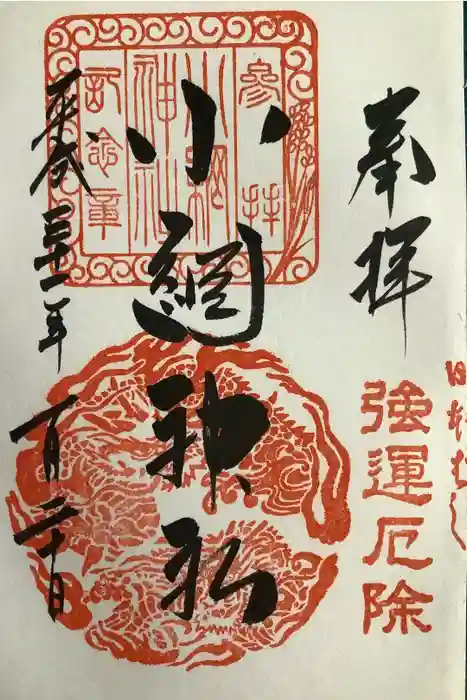 奉拝
強運厄除
參拝
小網
神社
記念章
小網神社
平成三十一年
一月二十日